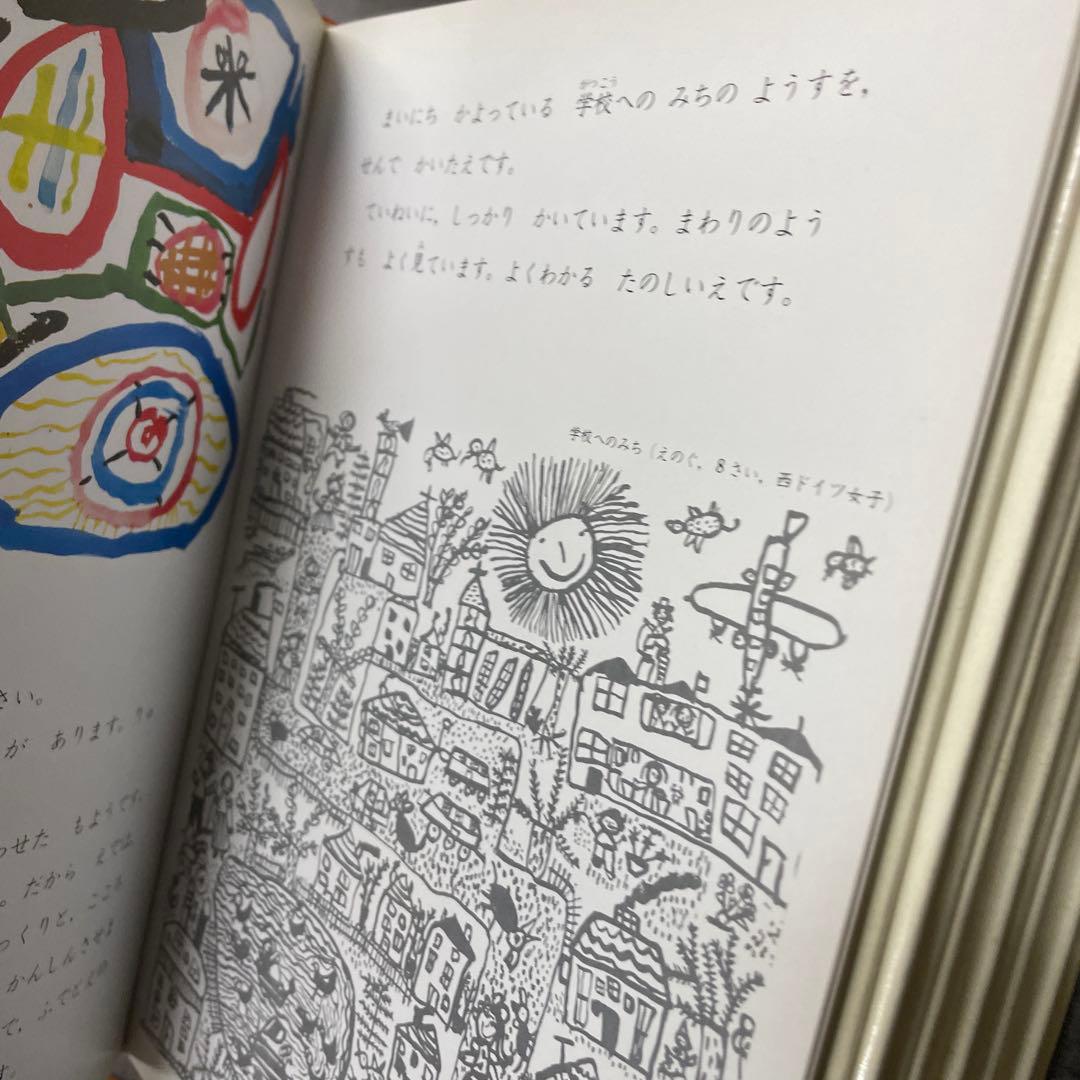 まいにち かよっている 学校への みちの ようすを,
がっこう
せんで かいたえです。
ていねいに, しっかり かいています。まわりのよう
すも よく見ています。よくわかる たのしいえです。
み
学校へのみち (えのぐ, 8さい, 西ドイツ女子)
さい。
が あります。
わせた もようです,
だから えでは
っくりと, こころ
かんしんさせま
で,
す。